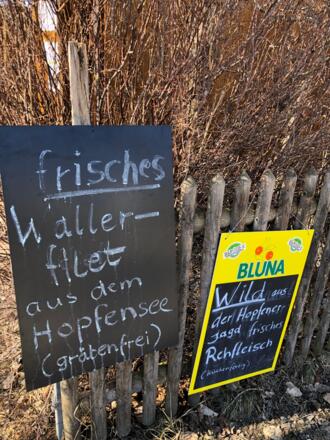 frisches
Waller-
filet
aus dem
Hopfensee
(grätenfrei)
BLUNA
Wild aus
der Hopfener
Jagd frisches
Rehfleisch
(küchenfertig)